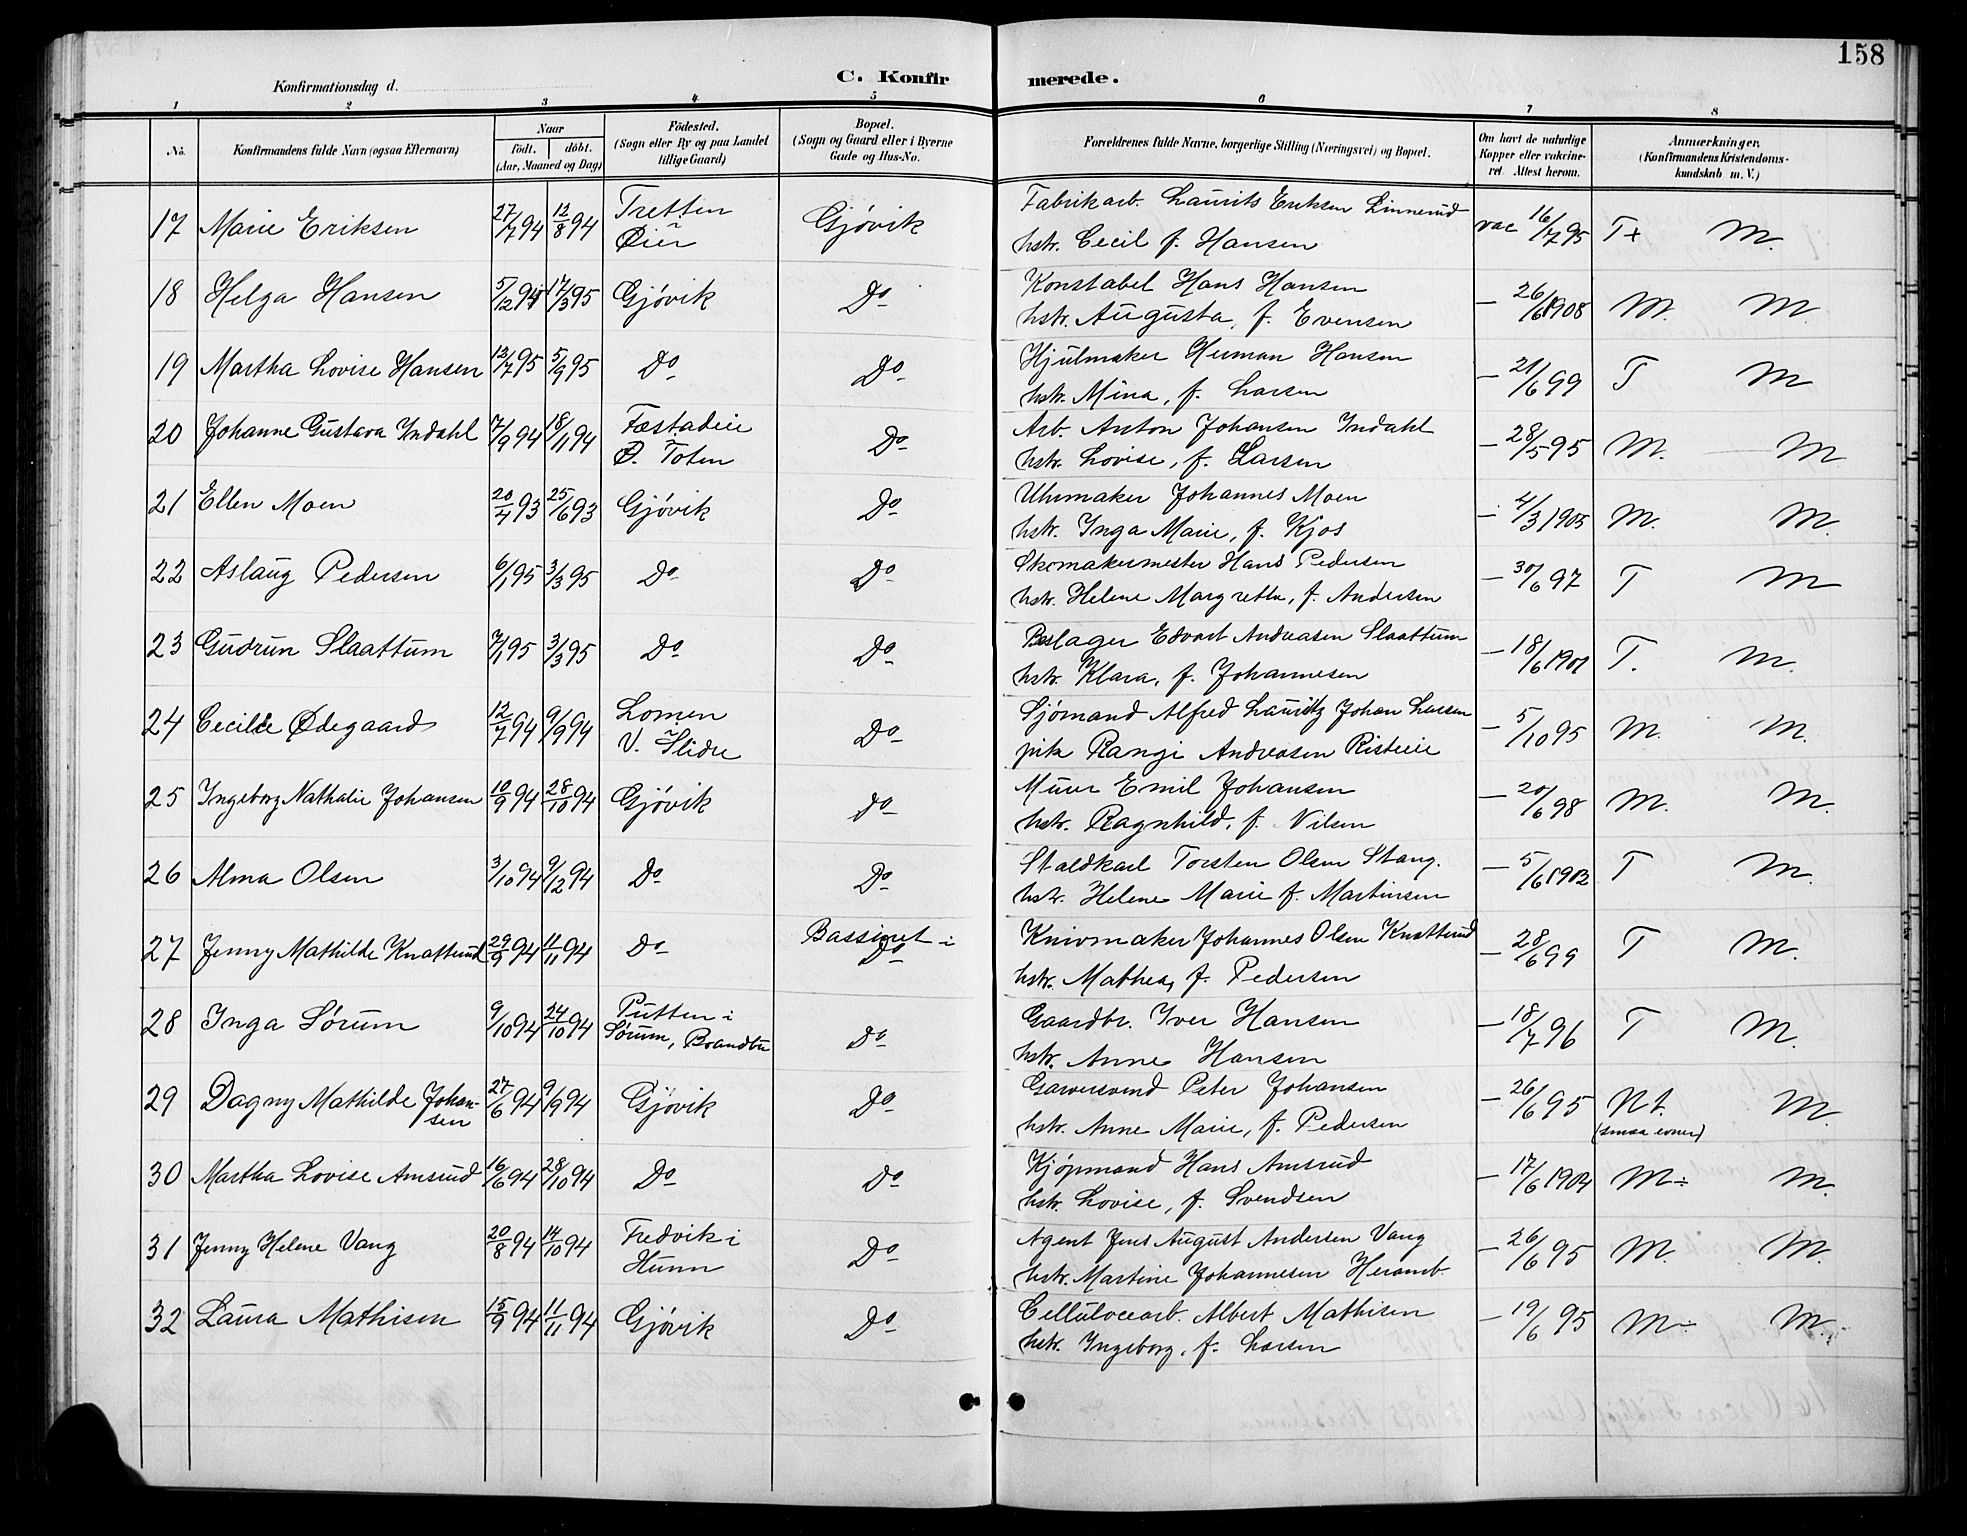 158
Konfirmationsdag d.
C. Konfirmerede.
1 2 3 4 5 6 7 8
No. Konfirmandens fulde Navn (ogsaa Efternavn) Naar født. døbt. (Aar, Maaned og Dag) Fødested. (Sogn eller By og paa Landet tillige Gaard) Bopæl. (Sogn og Gaard eller i Byerne Gade og Hus-No. Forældrenes fulde Navne, borgerlige Stilling (Næringsvei) og Bopæl. Om havt de naturlige Kopper eller vakcineret. Attest herom. Anmærkninger, (Konfirmandens Kristendomskundskab m. V.)
17 Marie Eriksen 27/7 94 12/8 94 Tretten i Øier Gjøvik Fabrikarb. Laurits Eriksen Linnerud
hstr. Cecil f. Hansen vac 16/7 95 T+ M.
18 Helga Hansen 5/12 94 17/3 95 Gjøvik Do Konstabel Hans Hansen
hstr. Augusta, f. Evensen — 26/6 1908 M. M.
19 Martha Lovise Hansen 13/7 95 5/9 95 Do Do Hjulmaker Herman Hansen
hstr. Mina, f. Larsen — 21/6 99 T M
20 Johanne Gustava Indahl 7/9 94 18/1 94 Fæstadeie Ø. Toten Do Arb. Anton Johansen Indahl
hstr. Lovise, f. Larsen — 28/5 95 M. M
21 Ellen Moen 20/4 93 25/6 93 Gjøvik Do Uhrmaker Johannes Moen
hstr. Inga Marie, f. Kjos — 4/3 1905 M. M.
22 Aslaug Pedersen 6/1 95 3/3 95 Do Do Skomakermester Hans Pedersen
hstr. Helene Margrethe, f. Andersen — 30/6 97 T M
23 Gudrun Slaattum 7/1 95 3/3 95 Do Do Beslager Edvart Andreasen Slaattum
hstr. Klara, f. Johannesen — 18/6 1901 T. M.
24 Cecilie Ødegaard 12/7 94 9/9 94 Lomen i V. Slidre Do Sjømand Alfred Lauritz Johan Larsen
pike Rangi Andreasen Risteeie — 5/10 95 M. M.
25 Ingeborg Nathalie Johansen 10/9 94 28/10 94 Gjøvik Do Murer Emil Johansen
hstr. Ragnhild, f. Nilsen — 20/6 98 M. M.
26 Alma Olsen 3/10 94 9/12 94 Do Do Staldkarl Torsten Olsen Stang.
hstr. Helene Marie f. Martinsen — 5/6 1902 T M.
27 Jenny Mathilde Knatterud 29/9 94 11/11 94 Do Bassinet i Do Knivmaker Johannes Olsen Knatterud
hstr. Mathea, f. Pedersen — 28/6 99 T M.
28 Inga Sørum 9/10 94 24/10 94 Putten i Sørum, Brandbu Do Gaardbr. Iver Hansen
hstr. Anne Hansen — 18/7 96 T M.
29 Dagny Mathilde Johansen 27/6 94 9/9 94 Gjøvik Do Garversvend Peter Johansen
hstr. Anne Marie, f. Pedersen — 26/6 95 Nt. (smaa evner) M.
30 Martha Lovise Amsrud 16/6 94 28/10 94 Do Do Kjøpmand Hans Amsrud
hstr. Lovise, f. Svendsen — 17/6 1904 M÷ M.
31 Jenny Helene Vang 20/8 94 14/10 94 Fredvik i Hunn Do Agent Jens August Andersen Vang
hstr. Martine Johannesen — 26/6 95 M. M.
32 Laura Mathisen 15/9 94 11/11 94 Gjøvik Do Cellulocearb. Albert Mathisen
hstr. Ingeborg, f. Larsen — 19/6 95 M÷ M.